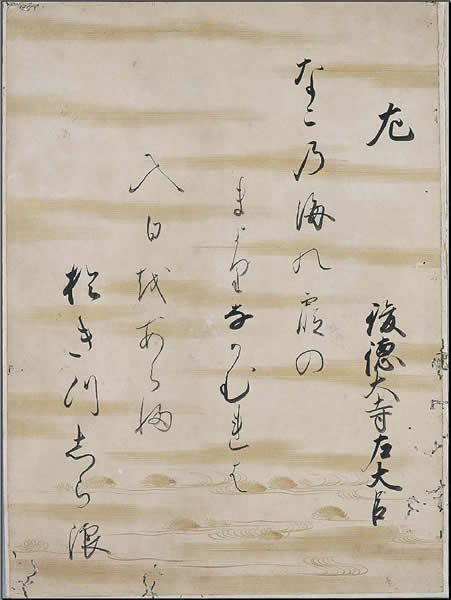 左
後徳大寺左大臣
なこ乃海の霞の
まよりなかむれは
入日越あらふ
於き川志ら浪